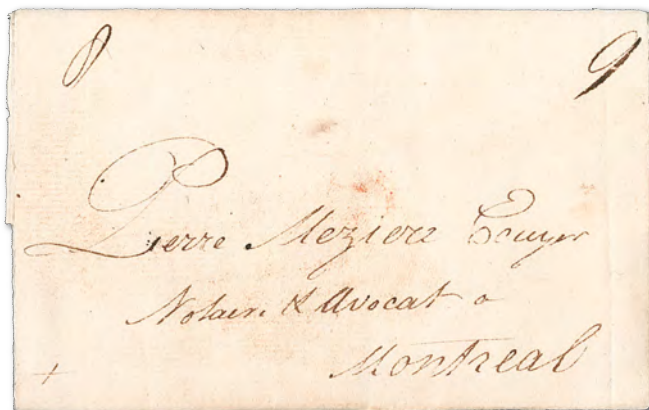 8 9
Pierre Meziere Ecuyer
Notaire & Avocat a
Montreal